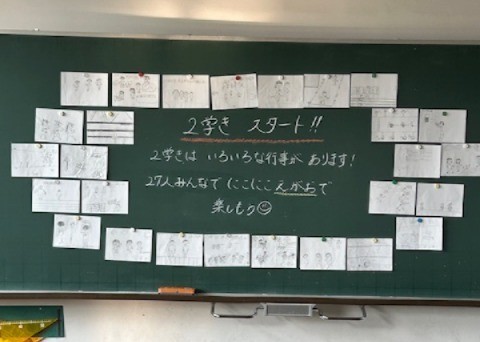 2学き スタート!!
2学きは いろいろな行事が あります!
27人みんなで にこにこ えがおで
楽しもう☺